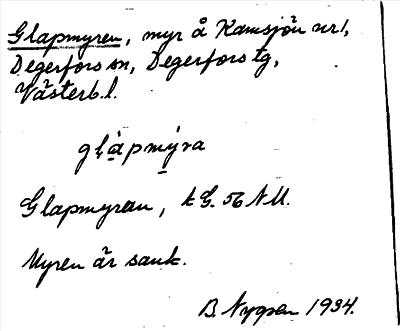 Glapmyren, myr å Kamsjön nr 1,
Degerfors sn, Degerfors tg,
Västerb. l.
glápmýra
Glapmyran, k G. 56 NU.
Myren är sank.
B. Nygren 1934.